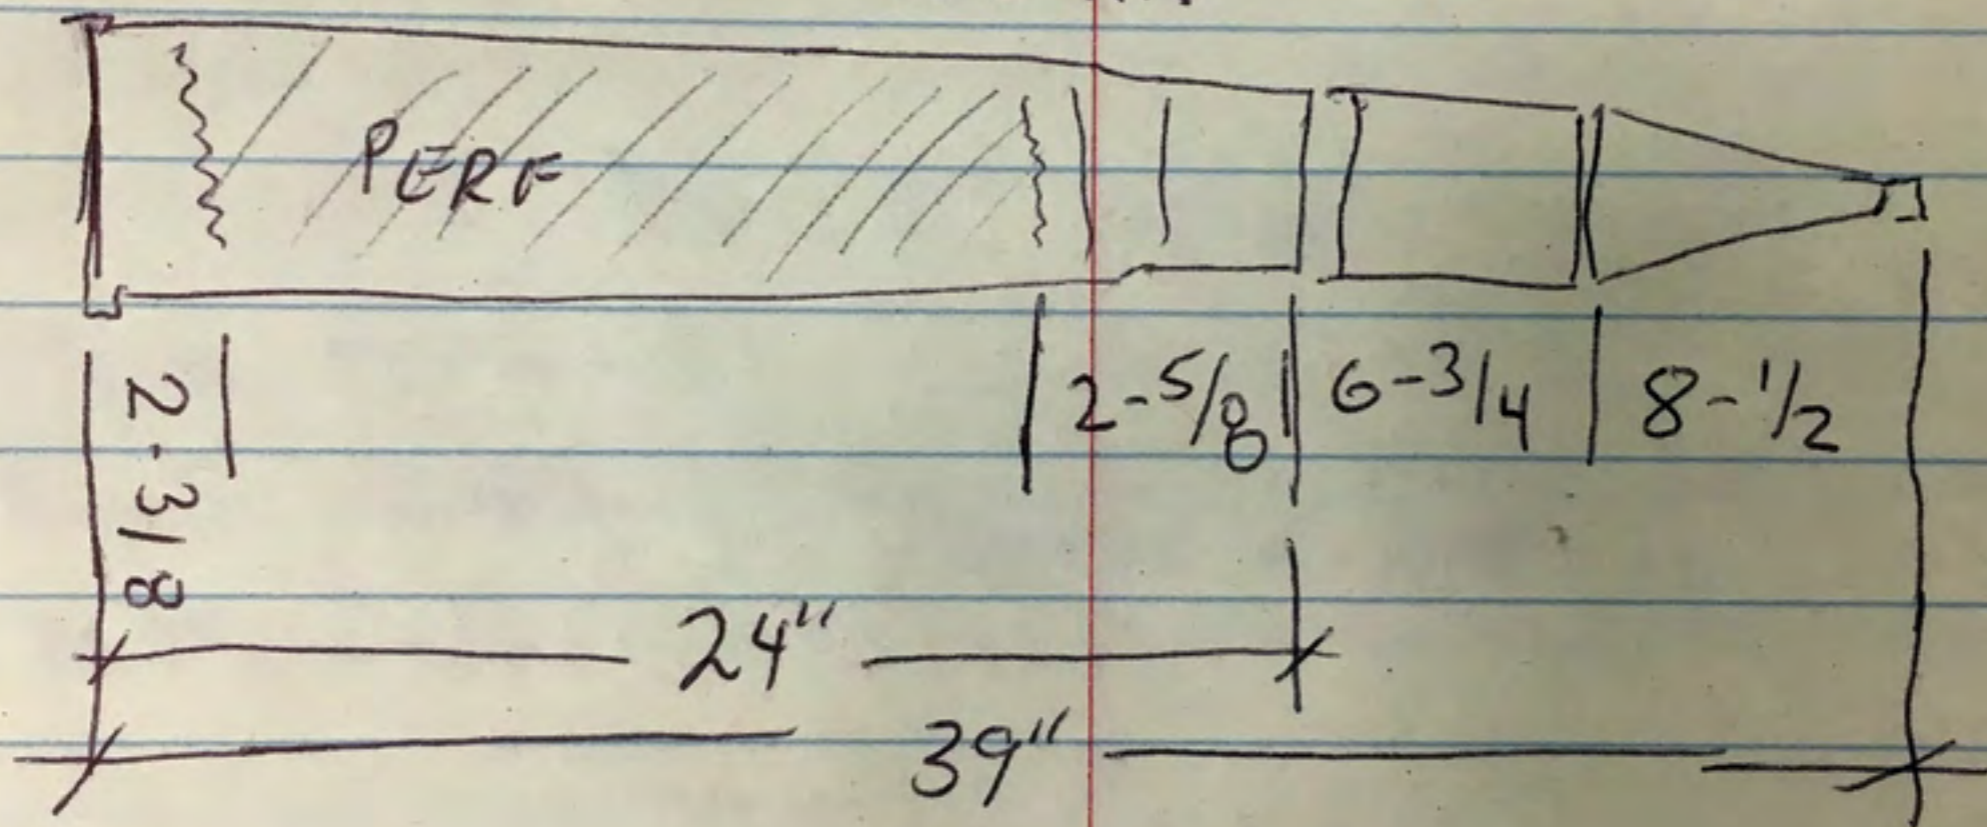 PERF
2-3/8
2-5/8 6-3/4 8-1/2
24"
39"